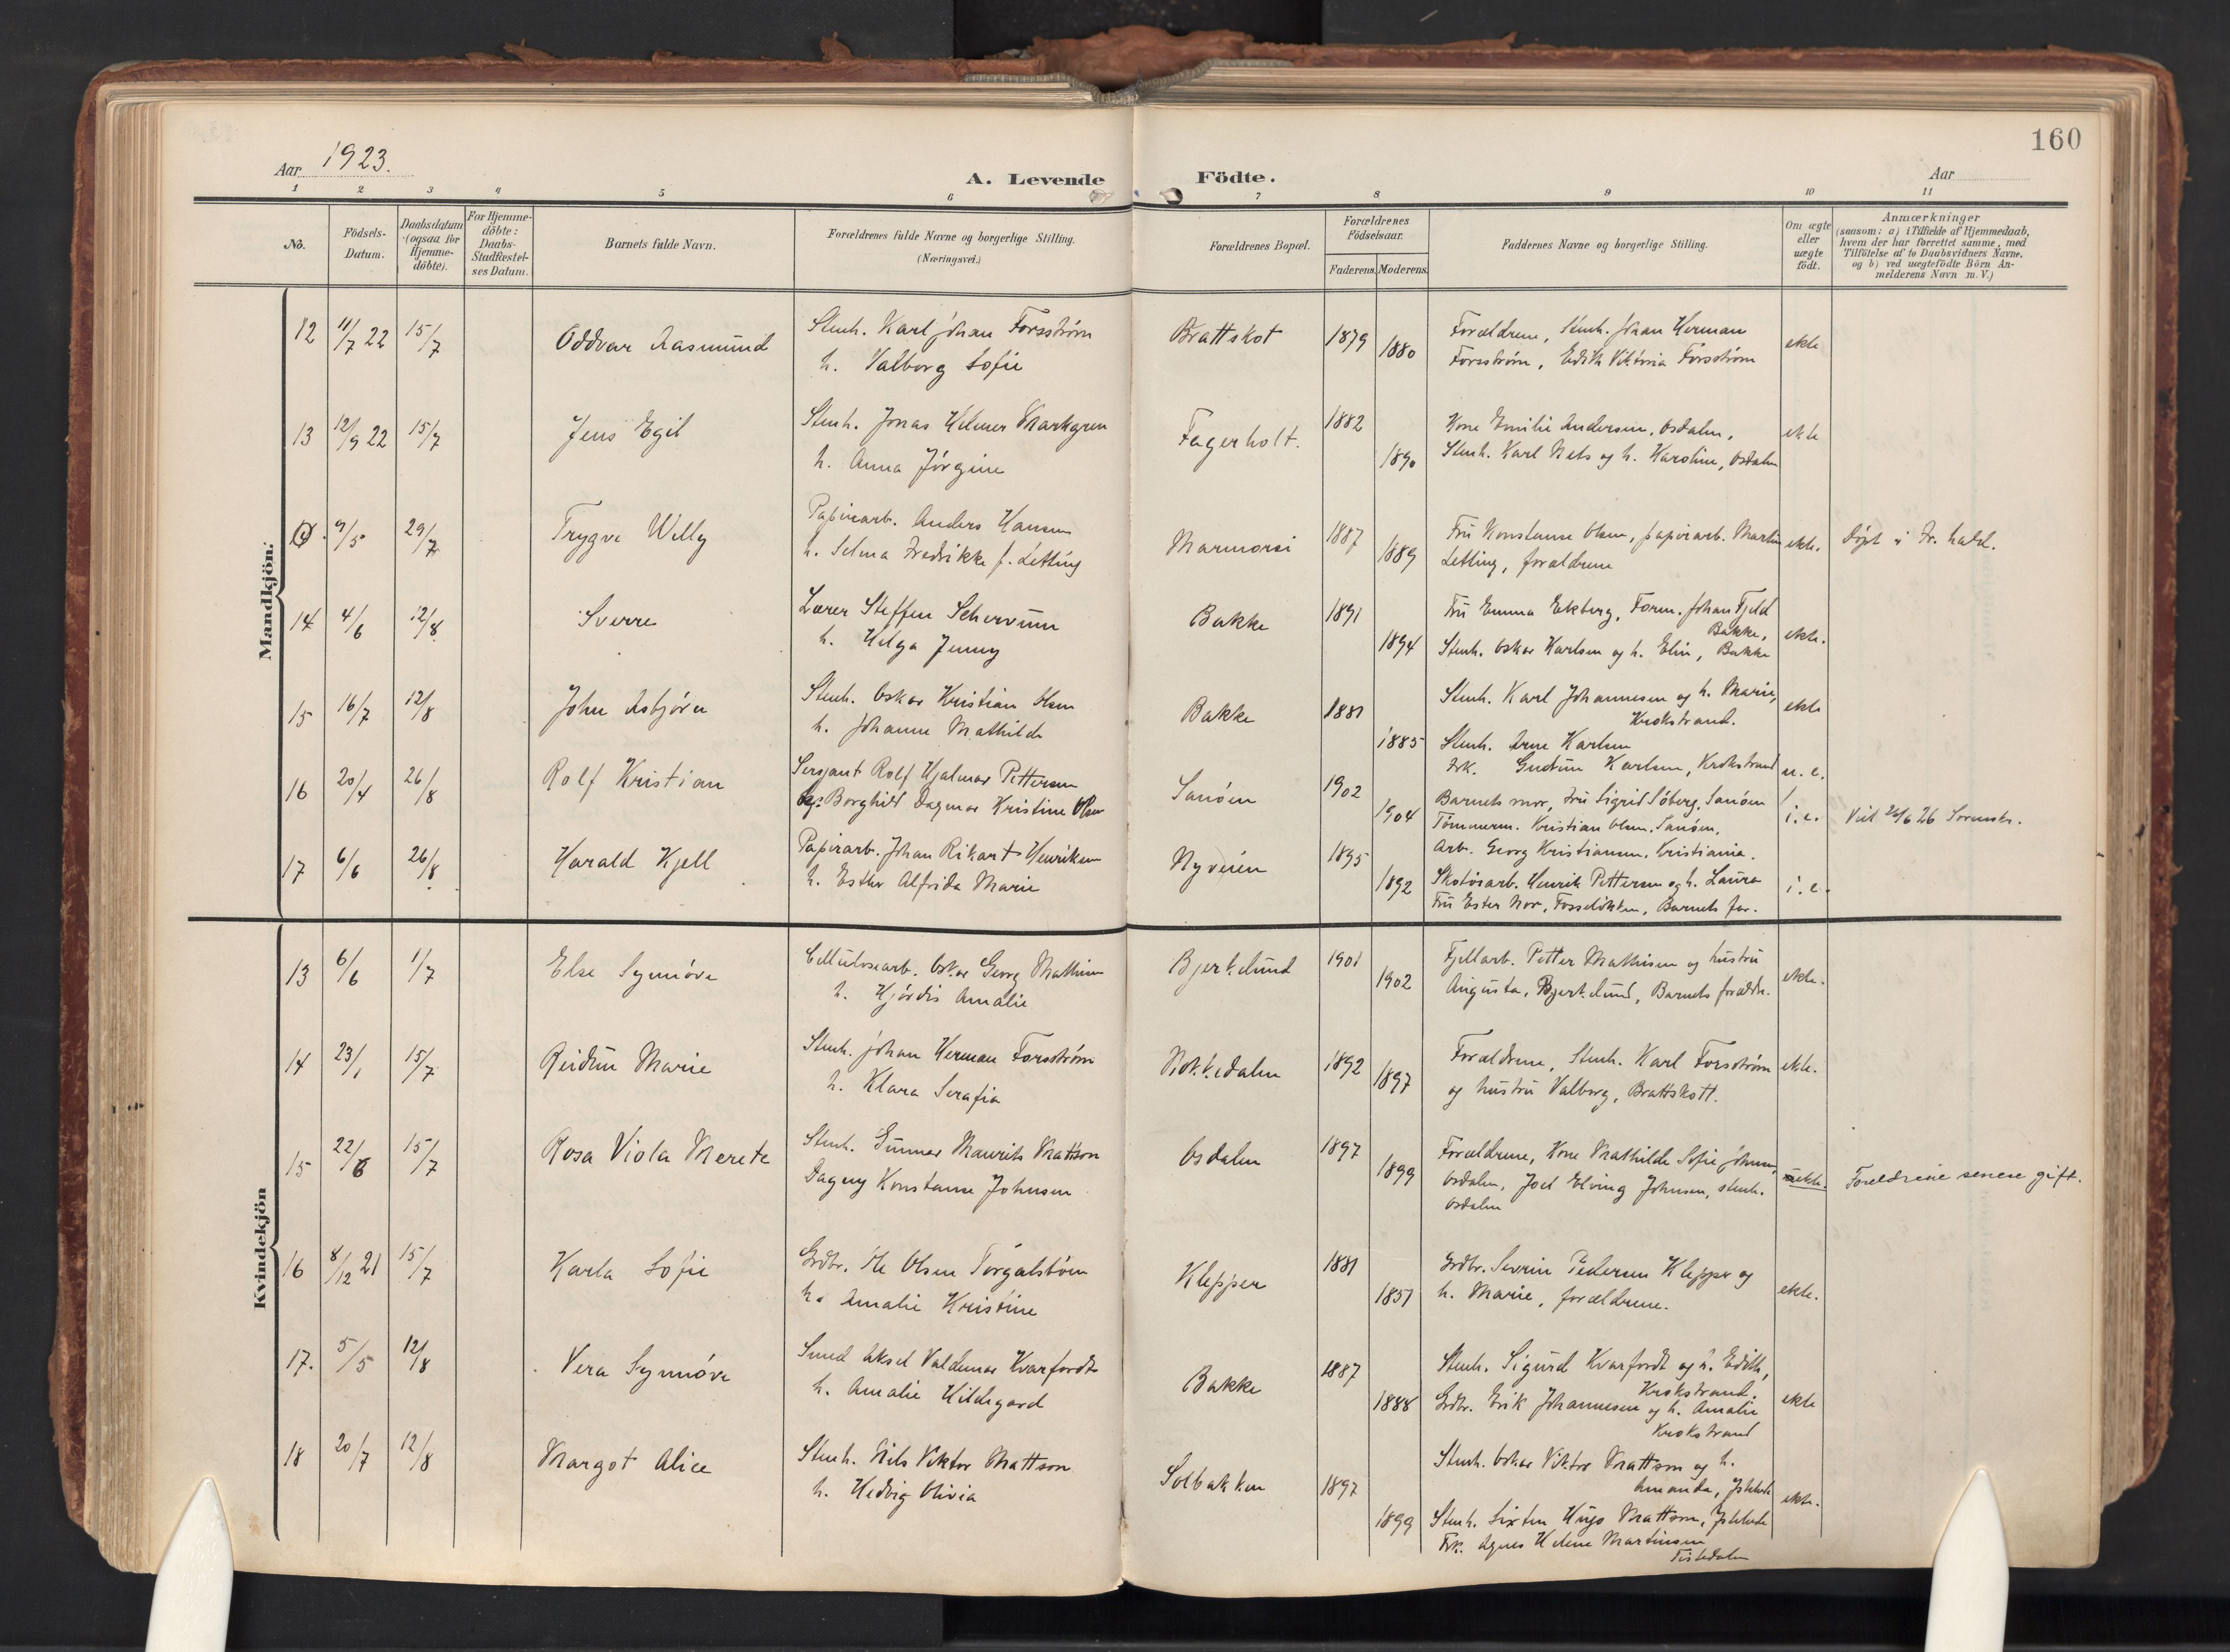 160
Aar 1923.
A. Levende Födte.
Aar
1 2 3 4 5 6 7 8 9 10 11
No.
Födsels-
Datum.
Daabsdatum
(ogsaa for
Hjemme-
döbte).
For Hjemme-
döbte:
Daabs-
Stadfæstel-
ses Datum.
Barnets fulde Navn.
Forældrenes fulde Navne og borgerlige Stilling.
(Næringsvei.)
Forældrenes Bopæl.
Forældrenes
Födselsaar.
Faderens. Moderens.
Faddernes Navne og borgerlige Stilling.
Om ægte
eller
uægte
födt.
Anmærkninger
(saasom: a) i Tilfælde af Hjemmedaab,
hvem der har forrettet samme, med
Tilföielse af to Daabsvidners Navne.
og b) ved uægtefödte Börn An-
melderens Navn m. V.)
Mandkjön:
12 11/7 22 15/7 Oddvar Aasmund
Stenh. Karl Johan Forsström
h. Valborg Sofie
Brattskot 1879 1880
Forældrene, Stenh. Johan Herman
Forsström, Edith Viktoria Forsström
ekte
13 12/9 22 15/7 Jens Egil
Stenh. Jonas Helmer Markgren
h. Anna Jörgine
Fagerholt. 1882 1890
Kone Emilie Andersen, Osdalen,
Stenh. Karl Nets og h. Karoline, Osdalen
ekte
9/5 29/7 Trygve Willy
Papirarb. Anders Hansen
h. Selma Fredrikke f. Letting
Marmorsi 1887 1889
Fru Konstanse Olsen, papirarb. Martin
Letting, forældrene
ekte. Döpt i Fr. hald.
14 4/6 12/8 Sverre
Lærer Steffen Schervum
h. Helga Jenny
Bakke 1891 1894
Fru Emma Ekberg, Form. Johan Fjeld
Bakke,
Stenh. Oskar Karlsen og h. Elin, Bakke
ekte.
15 16/7 12/8 John Asbjörn
Stenh. Oskar Kristian Olsen
h. Johanne Mathilde
Bakke 1881 1885
Stenh. Karl Johannesen og h. Marie,
Krokstrand.
Stenh. Arne Karlsen
Frk. Gudrun Karlsen, Krokstrand
ekte
16 20/4 26/8 Rolf Kristian
Sersjant Rolf Hjalmar Pettersen
Borghild Dagmar Kristine Olsen
Sanöen 1902 1904
u. e.
Barnets mor, Fru Sigrid Söberg, Sanöen
Tömmerm. Kristian Olsen, Sanöen,
Arb. Georg Kristiansen, Kristiania.
i. e. 26/6 26
17 6/6 26/8 Harald Kjell
Papirarb. Johan Rikart Henriksen
h. Esther Alfrida Marie
Nyveien 1895 1892
Skotöiarb. Henrik Pettersen og h. Laura
Fru Ester Mor, Fosselökken, Barnets far.
i. e.
Kvindekjön
13 6/6 1/7 Else Synnöve
Cellulosearb. Oskar Georg Mathisen
h. Hjördis Amalie
Bjerkelund 1901 1902
Fjellarb. Petter Mathisen og hustru
Augusta, Bjerkelund, Barnets forældre.
ekte.
14 23/1 15/7 Reidun Marie
Stenh. Johan Herman Forsström
h. Klara Serafia
Nokkedalen 1892 1897
Forældrene, Stenh. Karl Forsström
og hustru Valborg, Brattskott.
ekte.
15 22/6 15/7 Rosa Viola Merete
Stenh. Gunnar Mauritz Mattson
Dagny Konstanse Johnsen
Osdalen 1897 1899
Forældrene, Kone Mathilde Sofie Johnsen,
Osdalen, Joel Elving Johnsen, stenh.
Osdalen
uekte. Foreldrene senere gift.
16 8/12 21 15/7 Karla Sofie
Grdbr. Ole Olsen Torgalsböen
h. Amalie Kristine
Klepper 1881 1881
Grdbr. Severin Pedersen Klepper og
h. Marie, forældrene.
ekte.
17. 5/5 12/8 Vera Synnöve
Smed Aksel Valdemar Kvarfordt
h. Amalie Hildegard
Bakke 1887 1888
Stenh. Sigurd Kvarfordt og h. Edith,
Krokstrand.
Grdbr. Erik Johannesen og h. Amalie
Krokstrand
ekte
18 20/7 12/8 Margot Alice
Stenh. Nils Viktor Mattson
h. Hedvig Olivia
Solbakken 1897 1899
Stenh. Oskar Viktor Mattson og h.
Amanda,
Stenh. Sixten Hugo Mattson,
Frk. Agnes Helene Martinsen
Tistedalen
ekte.